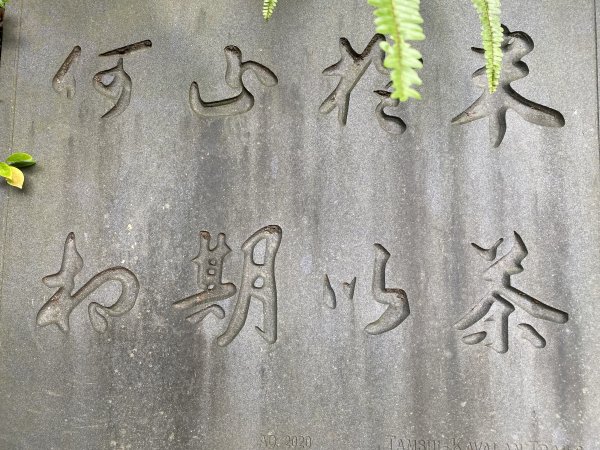 何止於米
相期以茶
AD. 2020
TAMSUI-KAVALAN